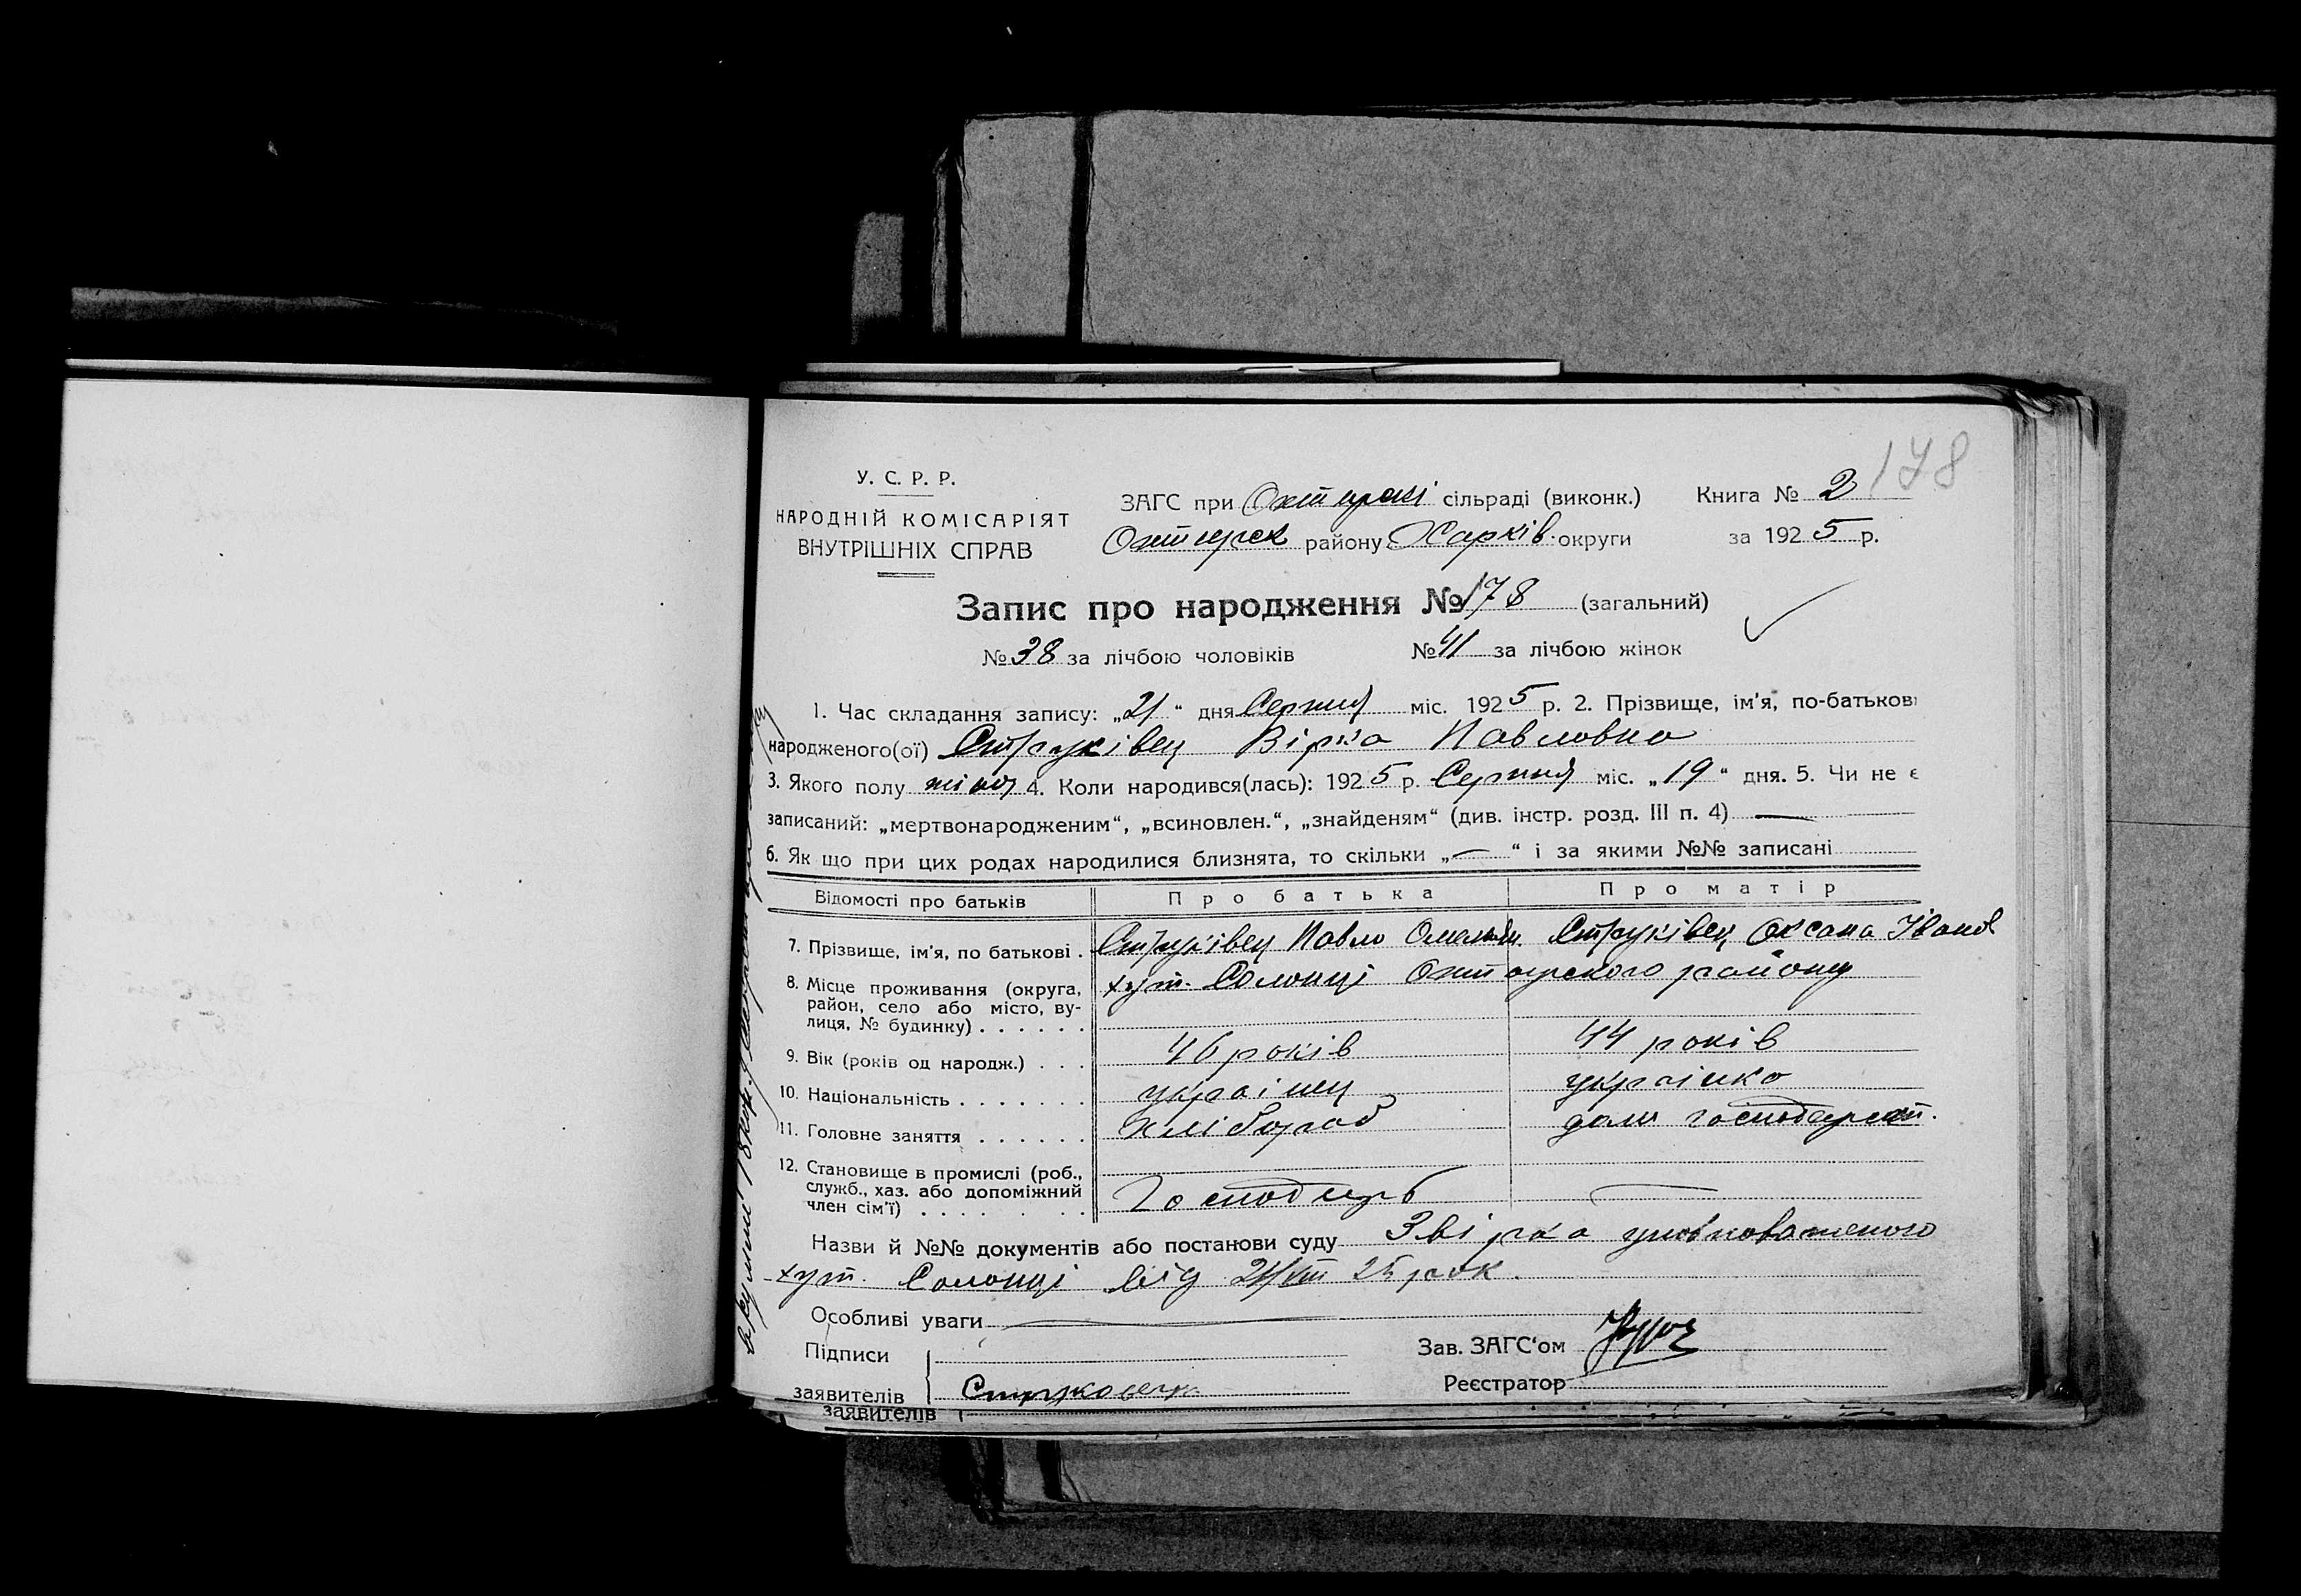 178
У. С. Р. Р.
НАРОДНІЙ КОМІСАРІЯТ
ВНУТРІШНІХ СПРАВ
ЗАГС при сільраді (виконк.) Книга № 2
району Харків. округи за 1925 р.
Запис про народження № 178 (загальний)
№ 38 за лічбою чоловіків № 41 за лічбою жінок
1. Час складання запису: „21“ дня Серпня міс. 1925 р. 2. Прізвище, ім'я, по-батькові
народженого(ої) Струківец Вірка Павловна
3. Якого полу жіноч 4. Коли народився(лась): 1925 р. Серпня міс. „19“ дня. 5. Чи не є
записаний: „мертвонародженим“, „всиновлен.“, „знайденям“ (див. інстр. розд. III п. 4) —
6. Як що при цих родах народилися близнята, то скільки „—“ і за якими №№ записані
Відомості про батьків Про батька Про матір
7. Прізвище, ім'я, по батькові . Струківец Павло Омельян. Струківец Оксана Іванов
8. Місце проживання (округа, хут. Солонці Охтирского району
район, село або місто, ву-
лиця, № будинку) . . . . . .
9. Вік (років од народж.) . . . 46 років 44 років
10. Національність . . . . . . . українец українка
11. Головне заняття . . . . . . хлібороб дом господарст.
12. Становище в промислі (роб.,
служб., хаз. або допоміжний Господарь —
член сім'ї) . . . . . . .
Назви й №№ документів або постанови суду Звірка уповноваженого
хут. Солонці від 21/VIII 25 рок.
Особливі уваги —
Підписи Зав. ЗАГС'ом
заявителів Реєстратор
заявителів